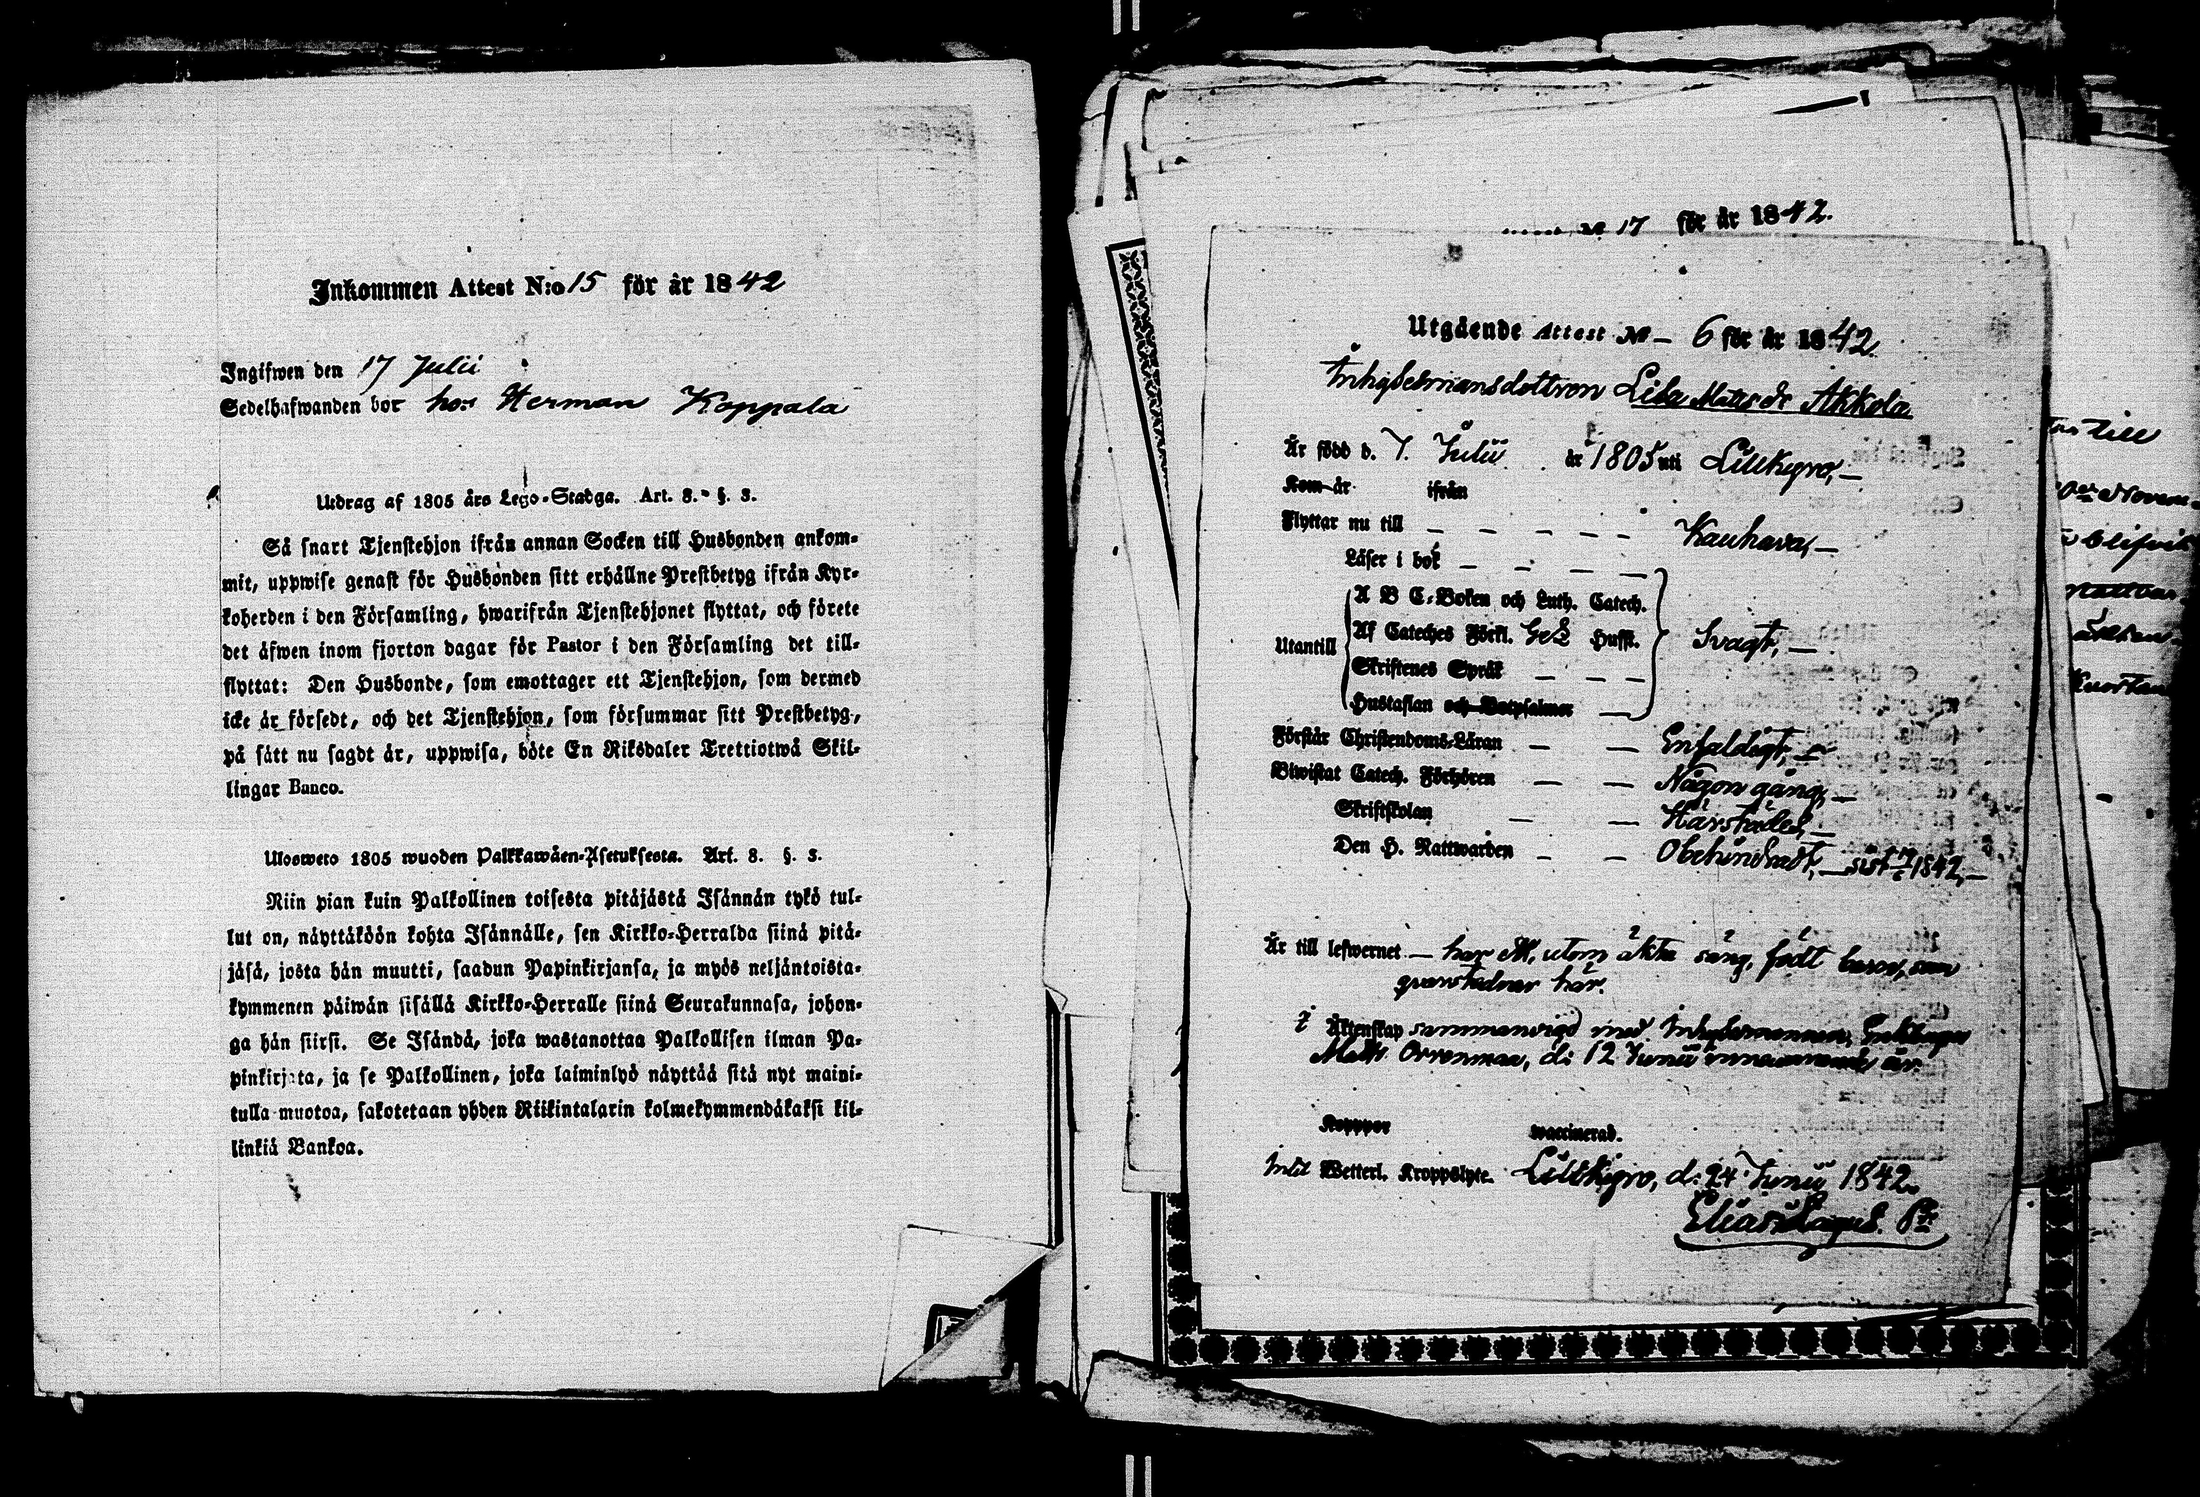 Inkommen Attest N:o 15 för år 1842
Ingifwen den 17 Julii
Sedelhafwanden bor hos Herman Koppala
Utdrag af 1805 års Lego-Stadga. Art. 8. §. 3.
Så snart Tjenstehjon ifrån annan Socken till Husbonden ankom-
mit, uppwise genast för Husbonden sitt erhållne Prestbetyg ifrån Kyr-
koherden i den Församling, hwarifrån Tjenstehjonet flyttat, och förete
det äfwen inom fjorton dagar för Pastor i den Församling det till-
flyttat: Den Husbonde, som emottager ett Tjenstehjon, som dermed
icke är försedt, och det Tjenstehjon, som försummar sitt Prestbetyg,
på sätt nu sagdt är, uppwisa, böte En Riksdaler Trettiotwå Skil-
lingar Banco.
Ulosweto 1805 wuoden Palkkawäen-Asetuksesta. Art. 8. §. 3.
Niin pian kuin Palkollinen toisesta pitäjästä Isännän tykö tul-
lut on, näyttäköön kohta Isännälle, sen Kirkko-Herralda siinä pitä-
jäsä, josta hän muutti, saadun Papinkirjansa, ja myös neljäntoista-
kymmenen päiwän sisällä Kirkko-Herralle siinä Seurakunnasa, johon-
ga hän siirsi. Se Isändä, joka wastanottaa Palkollisen ilman Pa-
pinkirjata, ja se Palkollinen, joka laiminlyö näyttää sitä nyt maini-
tulla muotoa, sakotetaan yhden Riikintalarin kolmekymmendäkaksi kil-
linkiä Bankoa.
№ 17 för år 1842.
Utgående Attest № 6 för år 1842.
Inhysesmansdottron Lisa Matsdr Akkola
Är född d. 7. Julii år 1805 uti Lillkyro,
Kom år ifrån
Flyttar nu till Kauhava,
Läser i bok
Utantill
A B C-Boken och Luth. Catech.
Af Cateches Förkl. Hufst. Svagt,
Skriftenes Språk
Hustaflan och Botpsalmer
Förstår Christendoms-Läran Enfaldigt,
Biwistat Catech. Förhören Någon gång,
Skriftskolan Härstädes,
Den H. Nattwarden Obehindradt, sist 1842,
Är till lefwernet har utom äkta säng, födt barn, som
qvarstadnar här.
i Äktenskap sammanvigd med Inhysesmannen,
Matts Orrenmaa, d: 12 Junii innevarande år.
Koppor waccinerad.
intet Wetterl. Kroppslyte. Lillkyro, d: 24 Junii 1842.
Elias Lagus. Pr
till
Novem-